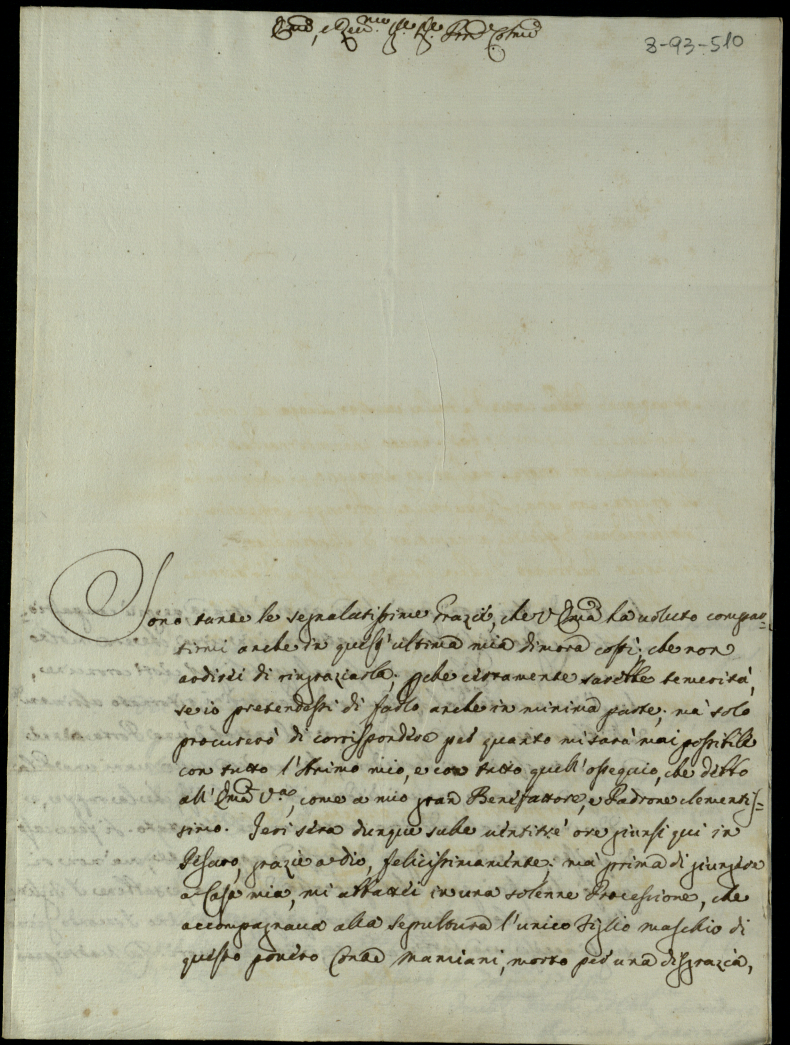 Em.o, e Rev.mo Sig.re Sig.re Pron Colmo
8-93-510
Sono tante le segnalatissime Grazie, che V. Em.a ha voluto compar=
tirmi anche in quest'ultima mia dimora costì, che non
ardisco di ringraziarla, pche certamente sarebbe temerità,
se io pretendessi di farlo anche in minima parte; mà solo
procurerò di corrispondere per quanto mi sarà mai possibile
con tutto l'Animo mio, e con tutto quell'ossequio, che debbo
all'Em.a V.ra, come a mio gran Benefattore, e Padrone clementis=
simo. Jeri sera dunque sulle ventitrè ore giunsi qui in
Pesaro, grazie a Dio, felicissimamente; mà prima di giungere
a Casa mia, mi abbattei in una solenne Processione, che
accompagnava alla sepoltura l'unico Figlio maschio di
questo povero Conte Mamiani, morto per una disgrazia,